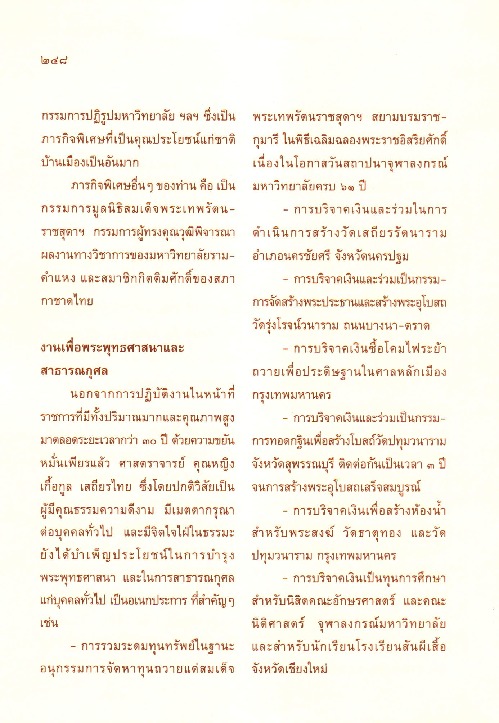 ๒๔๘
กรรมการปฏิรูปมหาวิทยาลัย ฯลฯ ซึ่งเป็น
ภารกิจพิเศษที่เป็นคุณประโยชน์แก่ชาติ
บ้านเมืองเป็นอันมาก
ภารกิจพิเศษอื่นๆ ของท่าน คือ เป็น
กรรมการมูลนิธิสมเด็จพระเทพรัตน-
ราชสุดาฯ กรรมการผู้ทรงคุณวุฒิพิจารณา
ผลงานทางวิชาการของมหาวิทยาลัยราม-
คำแหง และสมาชิกกิตติมศักดิ์ของสภา
กาชาดไทย
งานเพื่อพระพุทธศาสนาและ
สาธารณกุศล
นอกจากการปฏิบัติงานในหน้าที่
ราชการที่มีทั้งปริมาณมากและคุณภาพสูง
มาตลอดระยะเวลากว่า ๓๐ ปี ด้วยความขยัน
หมั่นเพียรแล้ว ศาสตราจารย์ คุณหญิง
เกื้อกูล เสถียรไทย ซึ่งโดยปกติวิสัยเป็น
ผู้มีคุณธรรมความดีงาม มีเมตตากรุณา
ต่อบุคคลทั่วไป และมีจิตใจใฝ่ในธรรมะ
ยังได้บำเพ็ญประโยชน์ในการบำรุง
พระพุทธศาสนา และในการสาธารณกุศล
แก่บุคคลทั่วไป เป็นอเนกประการ ที่สำคัญๆ
เช่น
- การรวมระดมทุนทรัพย์ในฐานะ
อนุกรรมการจัดหาทุนถวายแด่สมเด็จ
พระเทพรัตนราชสุดาฯ สยามบรมราช-
กุมารี ในพิธีเฉลิมฉลองพระราชอิสริยศักดิ์
เนื่องในโอกาสวันสถาปนาจุฬาลงกรณ์
มหาวิทยาลัยครบ ๖๑ ปี
- การบริจาคเงินและร่วมในการ
ดำเนินการสร้างวัดเสถียรรัตนาราม
อำเภอนครชัยศรี จังหวัดนครปฐม
- การบริจาคเงินและร่วมเป็นกรรม-
การจัดสร้างพระประธานและสร้างพระอุโบสถ
วัดรุ่งโรจน์วนาราม ถนนบางนา-ตราด
- การบริจาคเงินซื้อโคมไฟระย้า
ถวายเพื่อประดิษฐานในศาลหลักเมือง
กรุงเทพมหานคร
- การบริจาคเงินและร่วมเป็นกรรม-
การทอดกฐินเพื่อสร้างโบสถ์วัดปทุมวนาราม
จังหวัดสุพรรณบุรี ติดต่อกันเป็นเวลา ๓ ปี
จนการสร้างพระอุโบสถเสร็จสมบูรณ์
- การบริจาคเงินเพื่อสร้างห้องน้ำ
สำหรับพระสงฆ์ วัดธาตุทอง และวัด
ปทุมวนาราม กรุงเทพมหานคร
- การบริจาคเงินเป็นทุนการศึกษา
สำหรับนิสิตคณะอักษรศาสตร์ และคณะ
นิติศาสตร์ จุฬาลงกรณ์มหาวิทยาลัย
และสำหรับนักเรียนโรงเรียนสันผีเสื้อ
จังหวัดเชียงใหม่